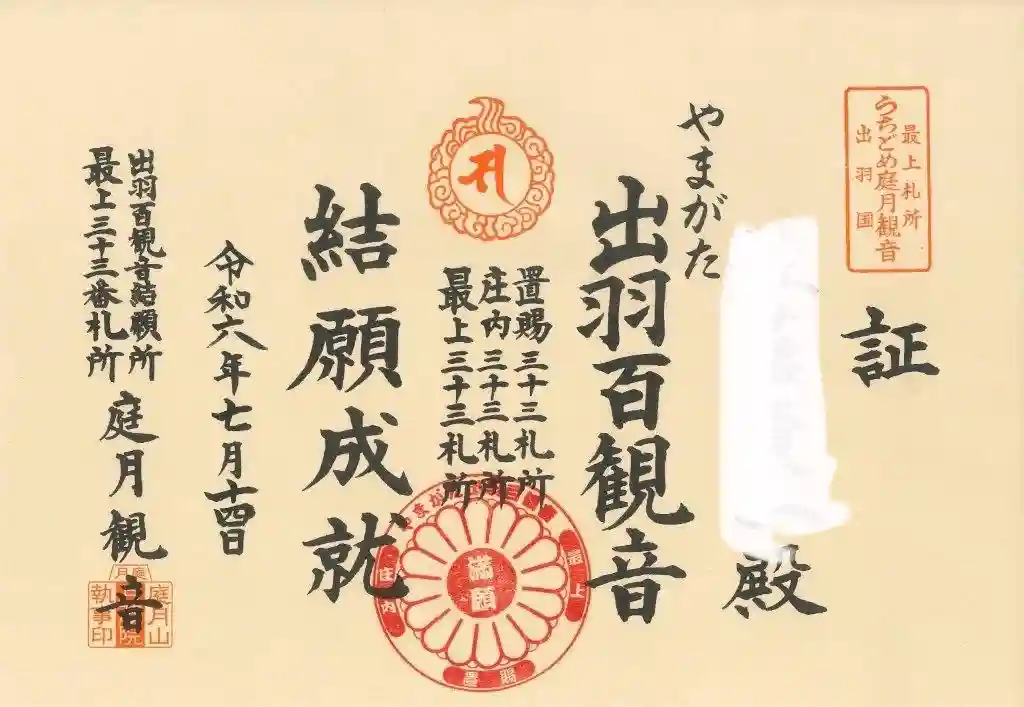 最上札所
うちどめ庭月観音
出羽国
証
殿
やまがた
出羽百観音
置賜三十三札所
庄内三十三札所
最上三十三札所
結願成就
令和六年七月十四日
出羽百観音結願所
最上三十三番札所
庭月観音
満願
最上
置賜
庄内
庭月山
執事印